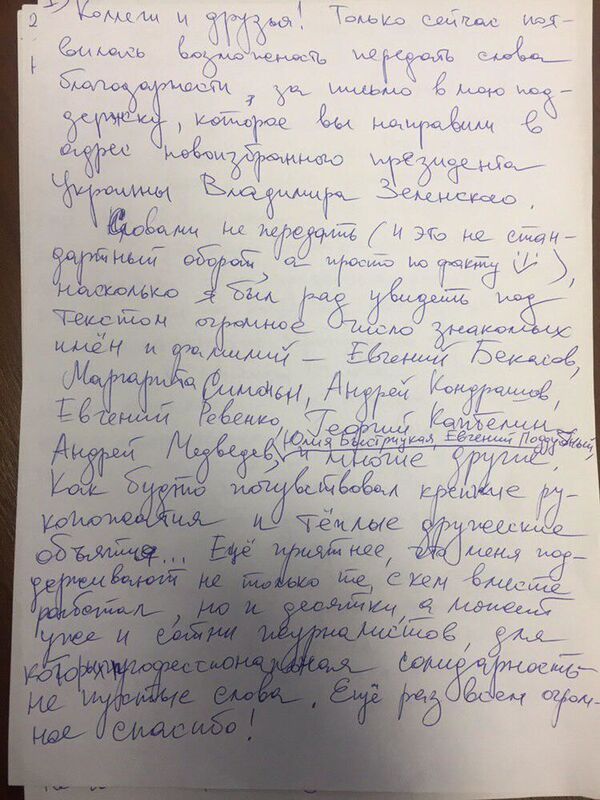 1) Коллеги и друзья! Только сейчас поя-
2
вилась возможность передать слова
благодарности, за письмо в мою под-
держку, которое вы направили в
адрес новоизбранного президента
Украины Владимира Зеленского.
Словами не передать (и это не стан-
дартный оборот, а просто по факту),
насколько я был рад увидеть под
текстом огромное число знакомых
имён и фамилий – Евгений Бекасов,
Маргарита Симоньян, Андрей Кондрашов,
Евгений Ревенко, Георгий Капбелин
Юлия Быстрицкая, Евгений Поддубный,
Андрей Медведев, и многие другие.
Как будто почувствовал крепкие ру-
копожатия и тёплые дружеские
объятия... Ещё приятнее, что меня под-
держивают не только те, с кем вместе
работал, но и десятки, а может
уже и сотни журналистов, для
которых профессиональная солидарность
не пустые слова. Ещё раз всем огром-
ное спасибо!